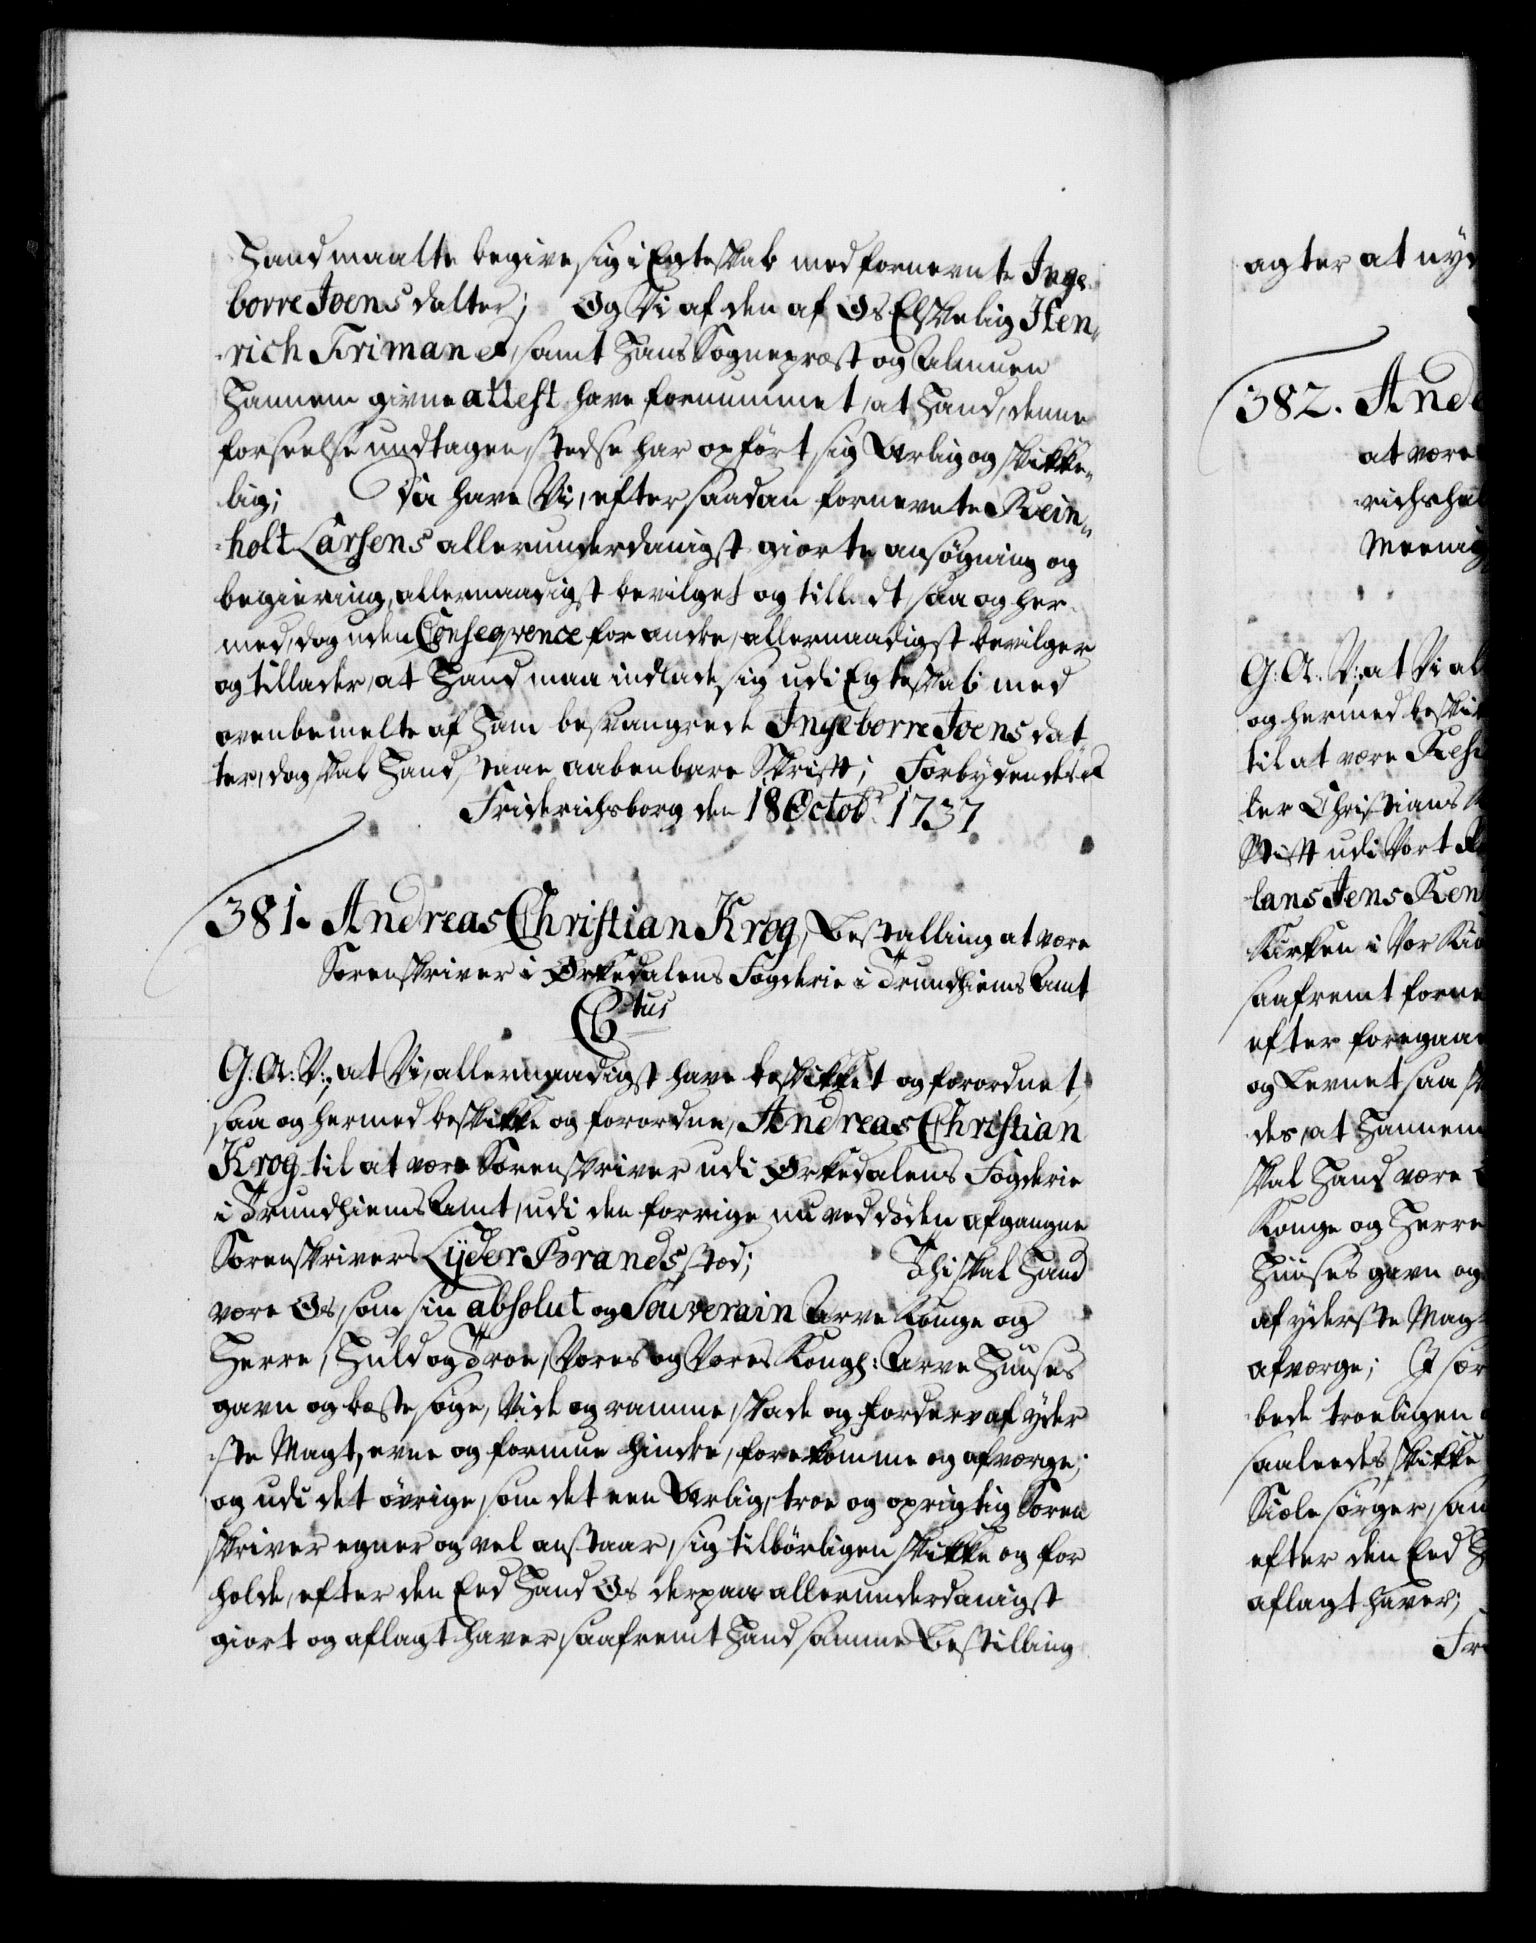 Hand maatte begive sig i Egteskab med fornevnte Inge¬
borre Joens datter; Og Vi af den af Os Elskelig Hen¬
rich Friman, samt Hans Sognepræst og Almuen
Hannem givne attest have fornummet, at Hand, denne
forseelse undtagen, stedse har opført sig Ærlig og skikke¬
lig; Da have Vi, efter saadan fornevnte Rein¬
holt Larsens allerunderdanigst giorte ansøgning og
begiering, allernaadigst bevilget og tilladt, saa og her¬
med, dog uden Conseqvence for andre, allernaadigst bevilger
og tillader, at Hand maa indlade sig udi Egteskab med
ovenbemelte af Ham besvangrede Ingeborre Joens dat
ter, dog skal Hand staae aabenbare Skrift; Forbydendes
Friderichsborg den 18 Octobr 1737
381. Andreas Christian Krog, Bestalling at være
Sorenskriver i Ørkedalens Fogderie i Trundhiems Amt
Ctus
G: A: V:, at Vi, allernaadigst have beskikket og forordnet,
saa og hermed beskikke og forordne, Andreas Christian
Krog til at være Sorenskriver udi Ørkedalens Fogderie
i Trundhiems Amt, udi den forrige nu ved døden afgangne
Sorenskrivers Lyder Brands sted; Thi skal Hand
være Os, som sin absolut og Souverain Arve Konge og
Herre, Huld og Troe, Vores og Vores Kongl: Arve Huuses
gavn og beste søge, Vide og ramme, skade og forderv af yder
ste Magt, evne og formue hindre, forekomme og afværge;
og udi det øvrige, som det een Ærlig, troe og oprigtig Soren
skriver egner og vel anstaar, sig tilbørligen skikke og for
holde, efter den Eed Hand Os derpaa allerunderdanigst
giort og aflagt haver, saafremt Hand samme Bestilling
agter at nyd
382. And
at være
richshal
Meenig
G: A: V:, at Vi al
og hermed beskik
til at være Resi
ter Christians
Stift udi Vort
lans Jens Ren
Kirken i Vor Kiø
saafremt forne
efter foregaae
og Levnet saa
des, at Hannem
skal Hand være
Konge og Herre
Huuses gavn og
af yderste Mag
afværge; I sær
bede troeligen
saaledes skikke
Siæle sørger, san
efter den Eed H
aflagt haver;
Fri